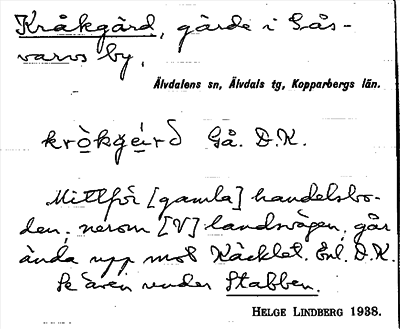 Kråkgärd, gärde i Gås-
varvs by.
Älvdalens sn, Älvdals tg, Kopparbergs län.
kròkgéırð Gå. D.K.
Mittför [gamla] handelsbo-
den, nerom [V] landsvägen, går
ända upp mot Käcklet. Enl. D.K.
Se även under Stabben.
HELGE LINDBERG 1938.